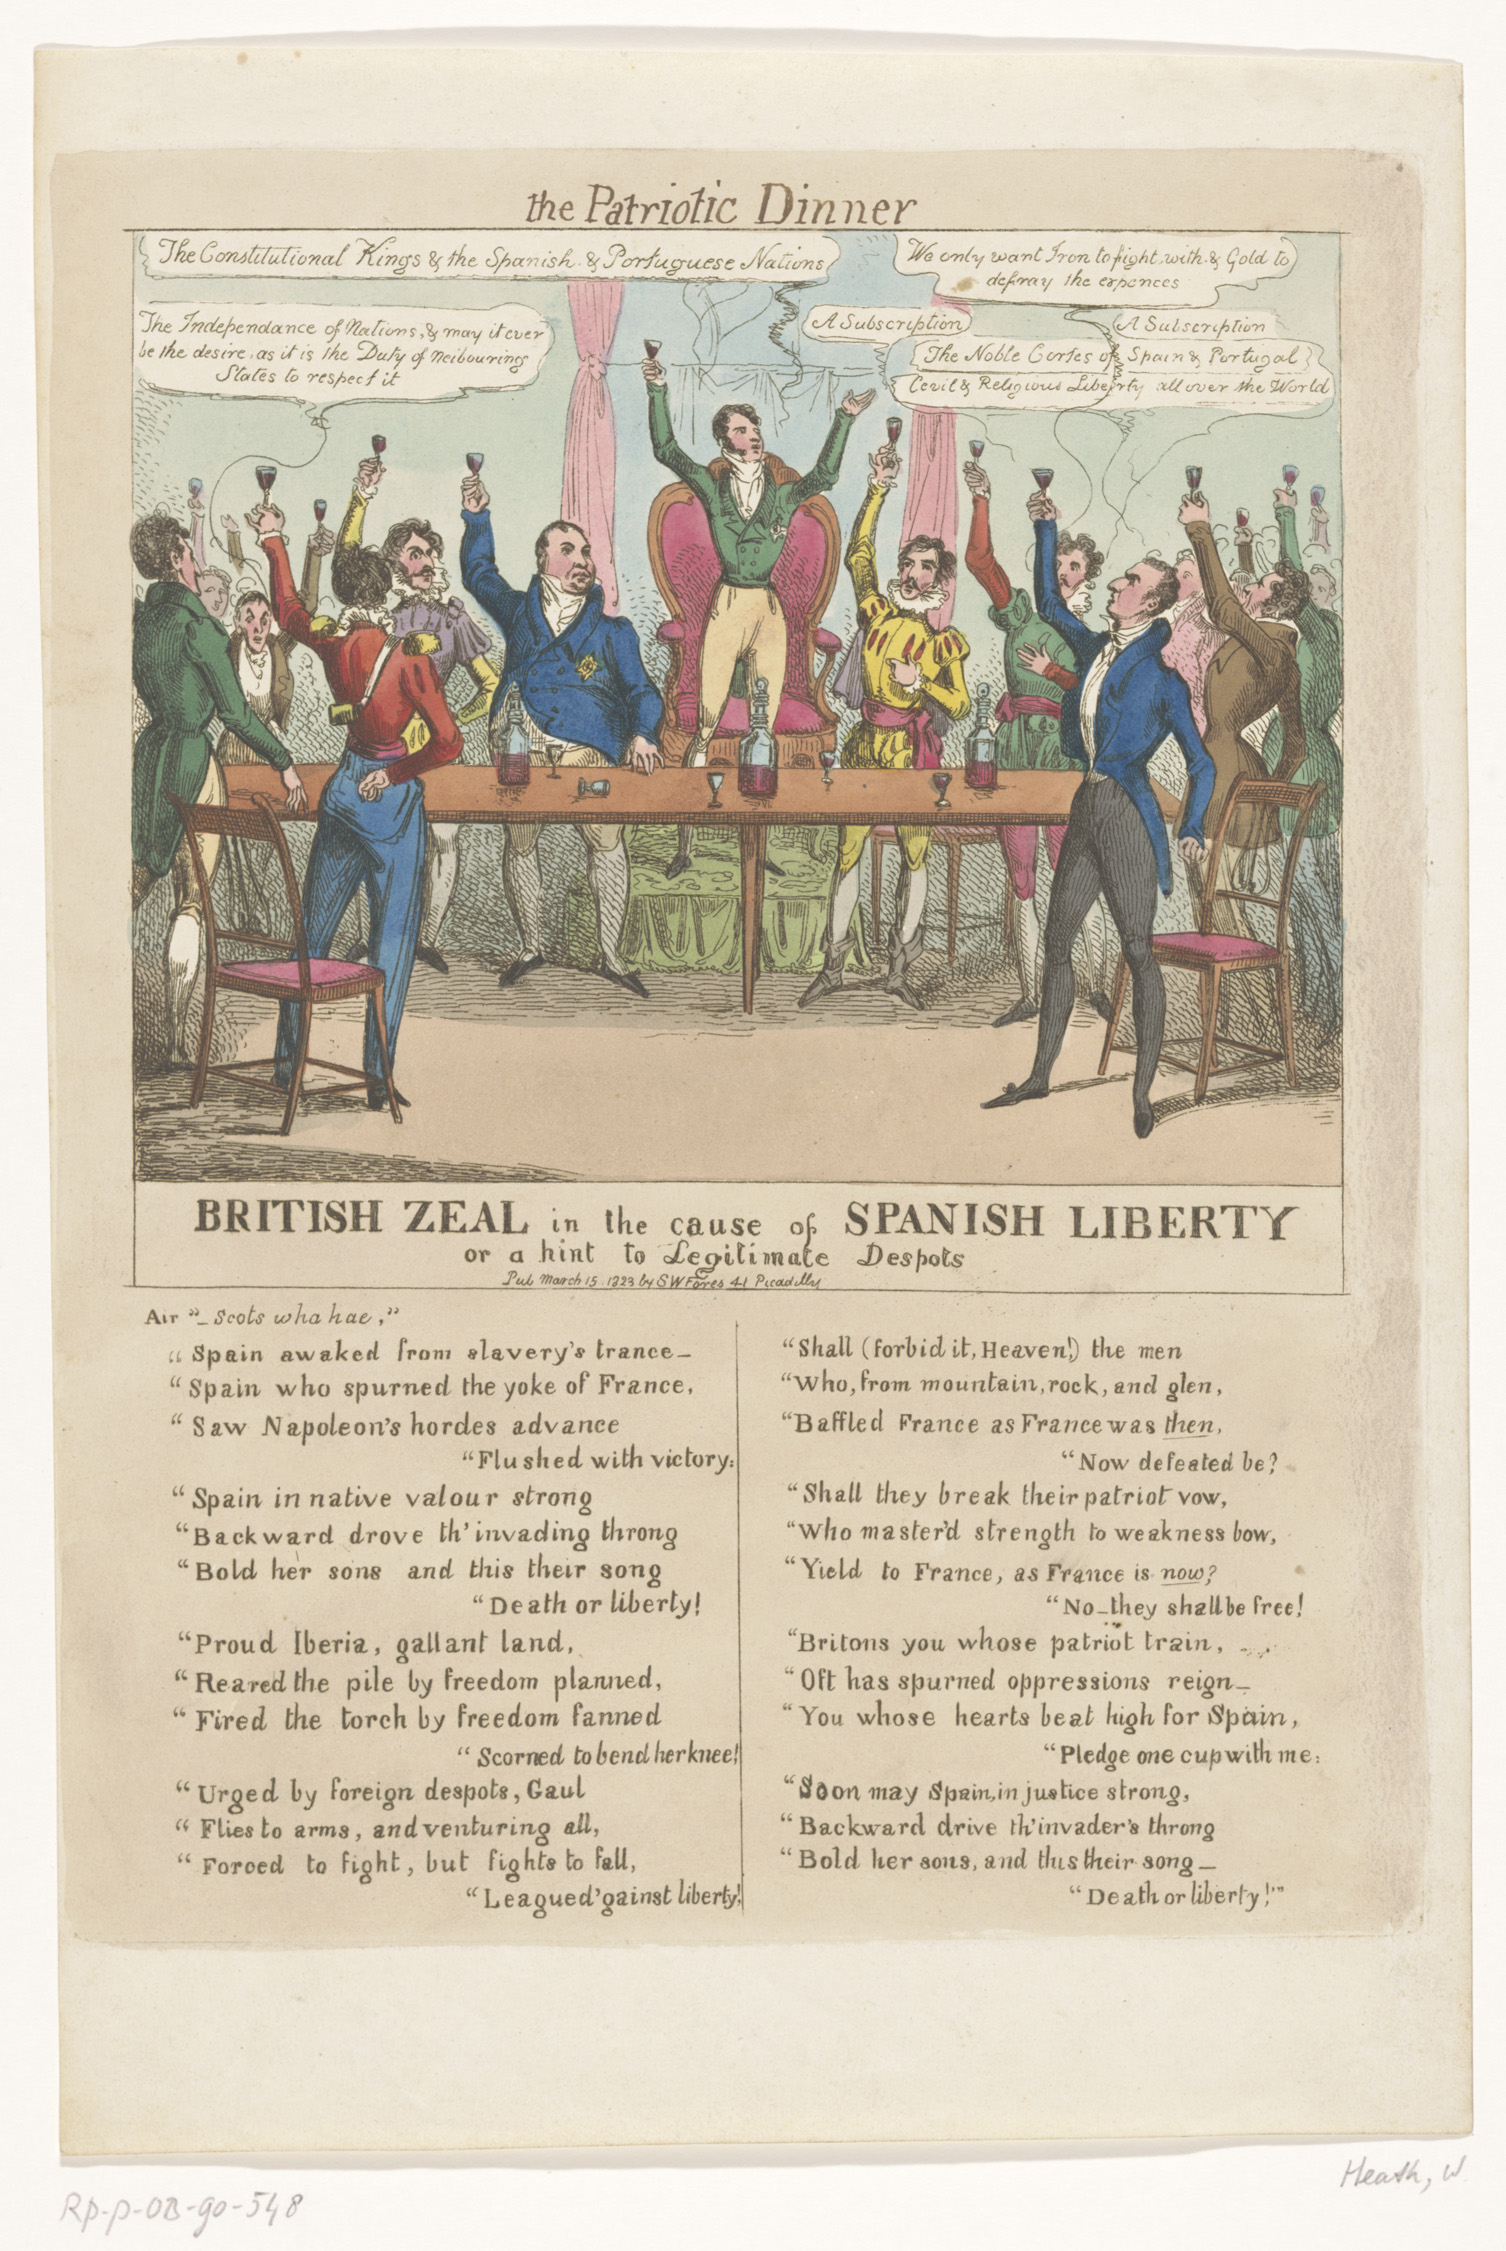 the Patriotic Dinner
The Constitutional Kings & the Spanish & Portuguese Nations
We only want Iron to fight with & Gold to
defray the expences
The Independance of Nations, & may it ever
be the desire, as it is the Duty of Neibourings
States to respect it
A Subscription
A Subscription
The Noble Cortes of Spain & Portugal
Cevil & Religious Liberty all over the World
BRITISH ZEAL in the cause of SPANISH LIBERTY
or a hint to Legitimate Despots
Pub March 15 1823 by S W Fores 41 Picadilly
Air "_ Scots wha hae,"
"Spain awaked from slavery's trance_
"Spain who spurned the yoke of France,
"Saw Napoleon's hordes advance
"Flushed with victory:
"Spain in native valour strong
"Backward drove th' invading throng
"Bold her sons and this their song
"Death or liberty!
"Proud Iberia, gallant land,
"Reared the pile by freedom planned,
"Fired the torch by freedom fanned
"Scorned to bend her knee!
"Urged by foreign despots, Gaul
"Flies to arms, and venturing all,
"Forced to fight, but fights to fall,
"Leagued 'gainst liberty!
"Shall (forbid it, Heaven!) the men
"Who, from mountain, rock, and glen,
"Baffled France as France was then,
"Now defeated be?
"Shall they break their patriot vow,
"Who master'd strength to weakness bow,
"Yield to France, as France is now?
"No_they shall be free!
"Britons you whose patriot train,
"Oft has spurned oppressions reign_
"You whose hearts beat high for Spain,
"Pledge one cup with me:
"Soon may Spain, in justice strong,
"Backward drive th' invader's throng
"Bold her sons, and this their song_
"Death or liberty!'"
Heath, W
RP-P-OB-90-548